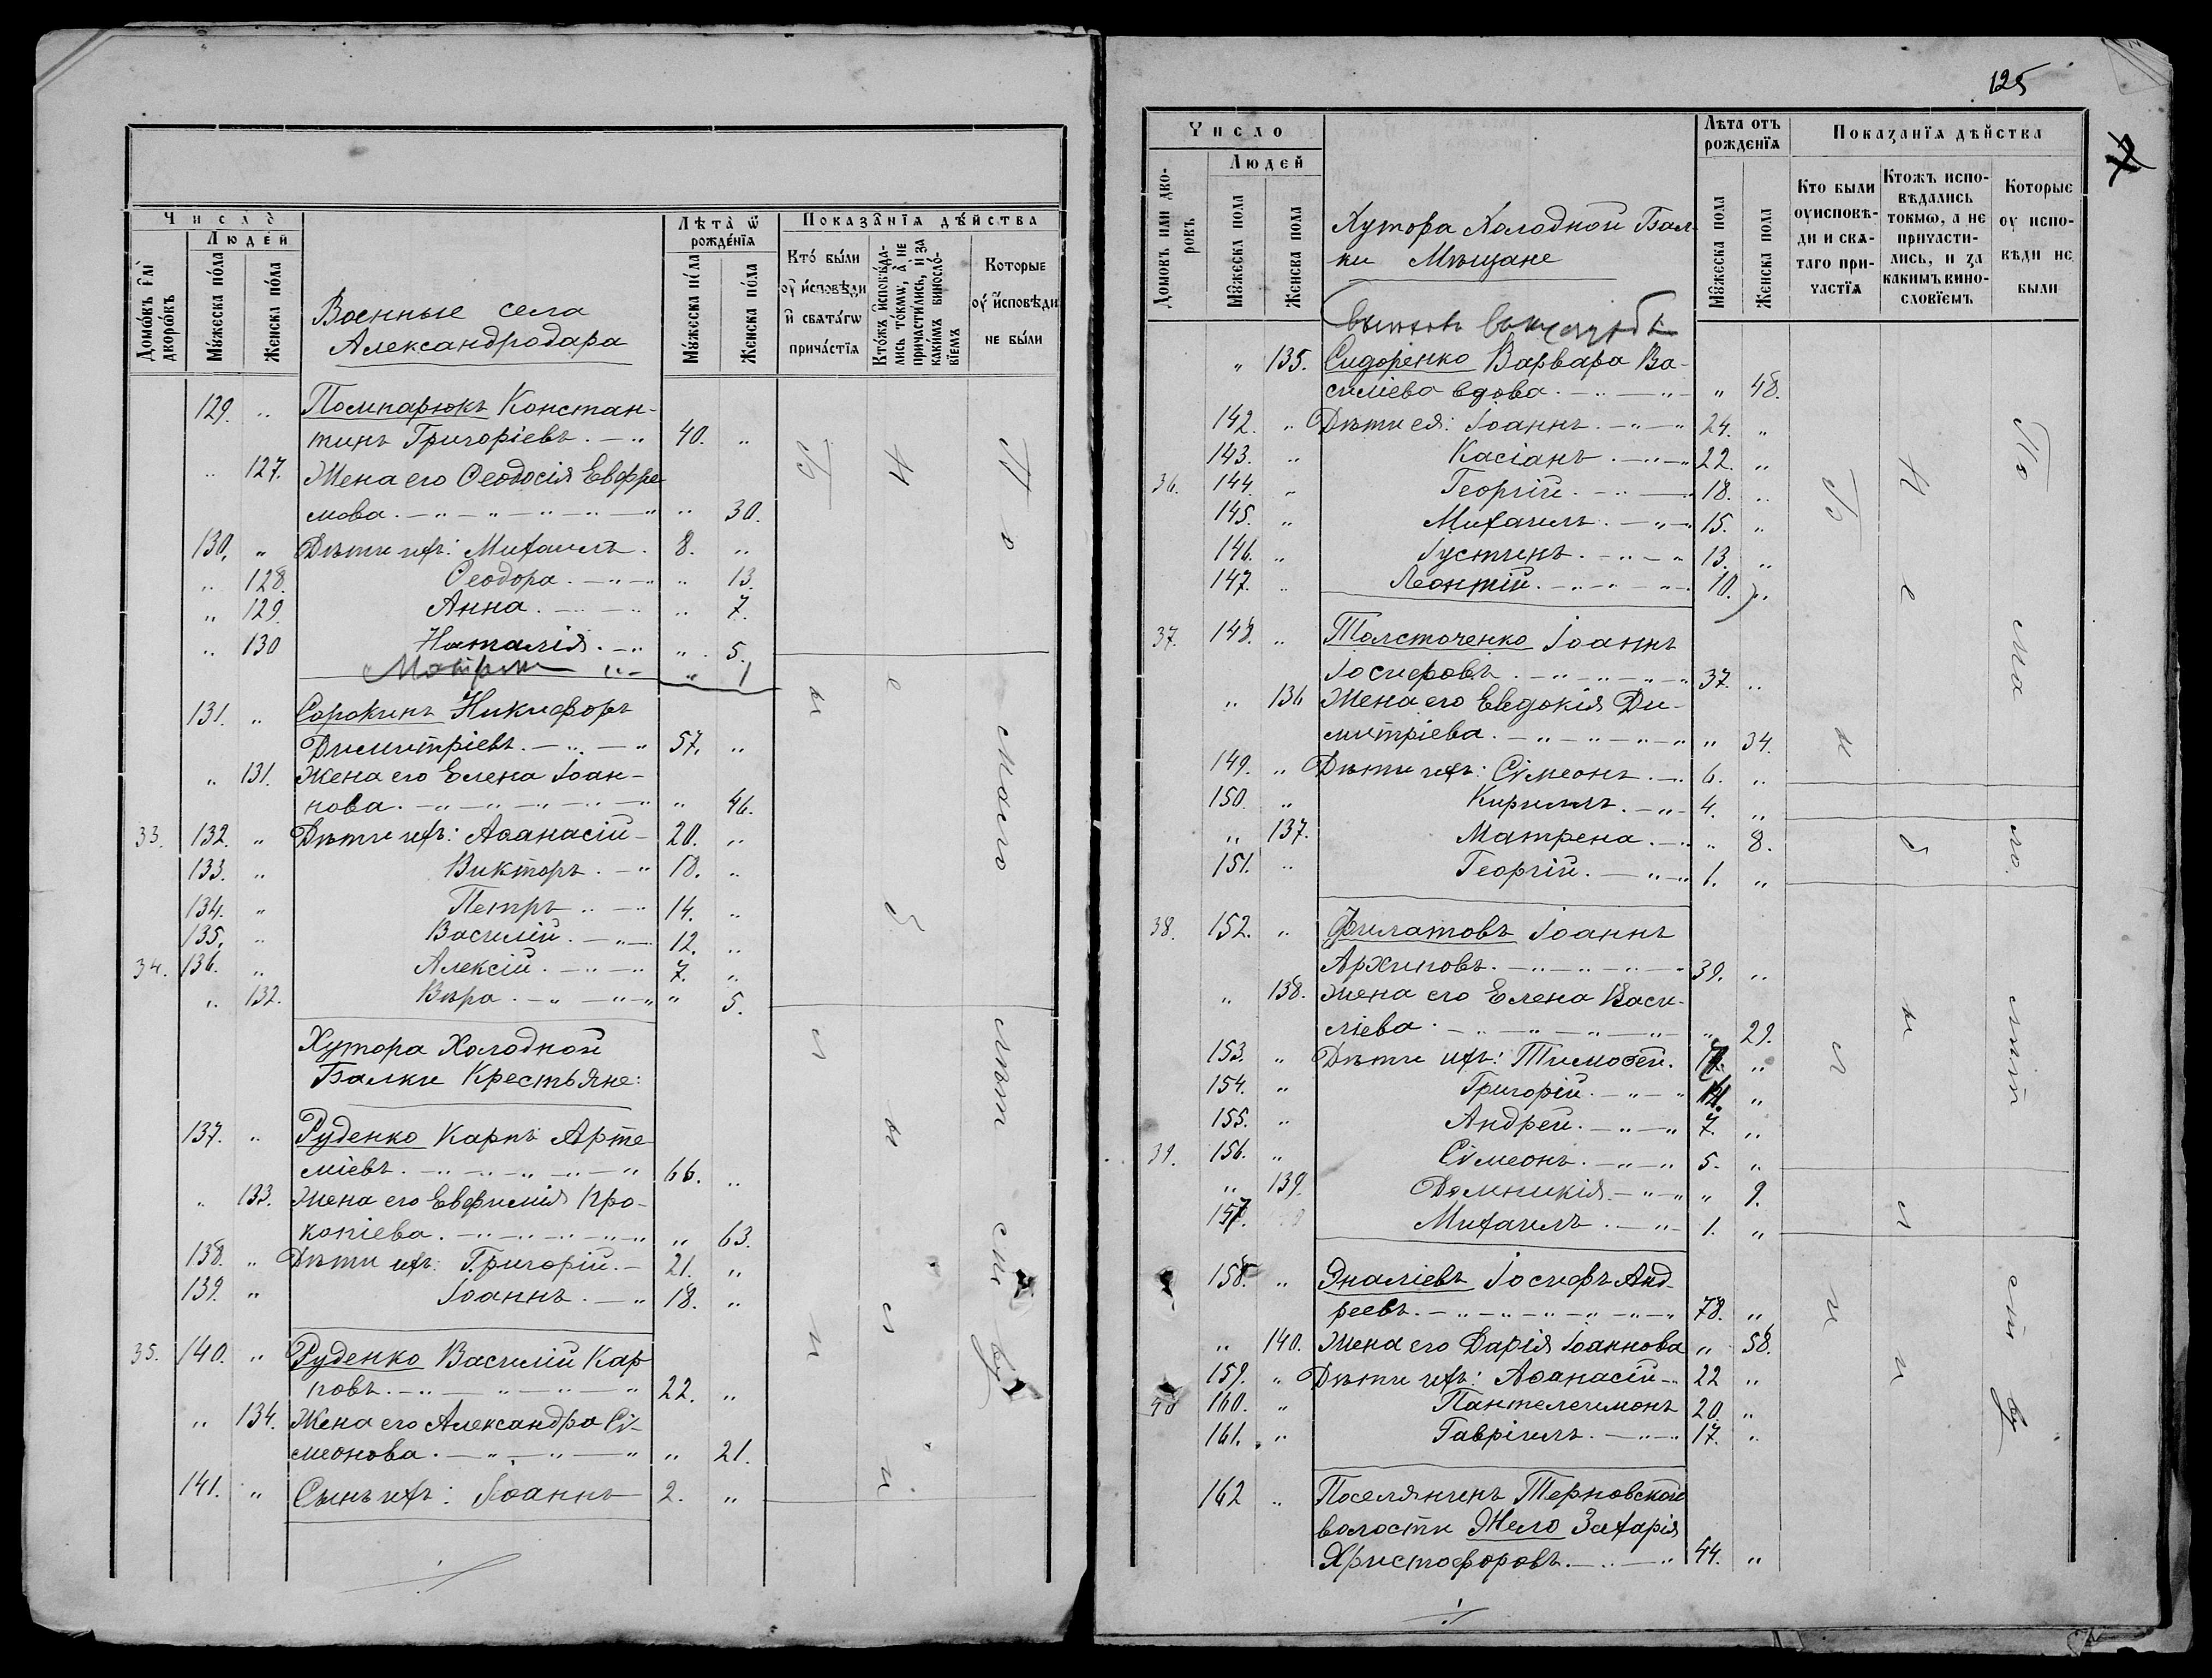 Число̀
Людей
Домѡ́въ и҆лѝ дворѡ́въ
Мꙋ́жеска по́ла
Же́нска по́ла
Военные села
Александродара
Лѣ́та ѿ рожде́нїѧ
Мꙋ́жеска по́ла
Же́нска по́ла
Показа̂нїѧ дѣ́йства
Кто́ бы́ли
оу҆ и҆сповѣ́ди
и҆ свѧта́гѡ
прича́стїѧ
Кто́жъ и҆сповѣ́да-
лись то́кмѡ, а҆ не
причасти́лись, и҆ за
каки́мъ виносло́-
вїемъ
Которые
оу҆ и҆сповѣди
не бы́ли
129. „ Помпарюкъ Констан-
тинъ Григоріевъ. — „ 40. „
„ 127. Жена его Ѳеодосія Евфре
мова. — „ — „ — „ — „ — „ „ 30.
130. „ Дѣти ихъ: Михаилъ. 8. „
„ 128. Ѳеодора. — „ — „ „ 13.
„ 129. Анна. — „ — „ „ 7.
„ 130 Наталія. — „ „ 5.
Матрона „ — „ 1
131. „ Сорокинъ Никифоръ
Димитріевъ. — „ — „ 57. „
„ 131. Жена его Елена Іоан-
нова. — „ — „ — „ — „ — „ „ 46.
33. 132. „ Дѣти ихъ: Аѳанасій — 20. „
133. „ Викторъ. — „ 18. „
134. „ Петръ „ — „ 14. „
135. „ Василій. — „ — 12. „
34. 136. „ Алексій. — „ — „ 7. „
„ 132. Вѣра. — „ — „ — „ „ 5.
Хутора Холодной
Балки Крестьяне:
137. „ Руденко Карпъ Арте
міевъ. — „ — „ — „ — „ — „ 66. „
„ 133. Жена его Евфимія Про-
копіева. — „ — „ — „ — „ — „ „ 63.
138. „ Дѣти ихъ: Григорій. — 21. „
139. „ Іоаннъ. — „ 18. „
35. 140. „ Руденко Василій Кар
повъ. — „ — „ — „ — „ 22. „
„ 134. Жена его Александра Сѵ-
меонова. — „ — „ — „ — „ „ 21.
141. „ Сынъ ихъ: Іоаннъ 2. „
Были
Не были
По малолѣтству
125
Число
Людей
Домовъ или дво-
ровъ
Мꙋжеска пола
Женска пола
Хутора Холодной Бал-
ки Мѣщане
Лѣта отъ
рожденїѧ
Мꙋжеска пола
Женска пола
Показанїѧ дѣйства
Кто были
оуисповѣ-
ди и свѧ-
таго при-
частїѧ
Ктожъ испо-
вѣдались
токмѡ, а не
причасти-
лись, и за
какимъ вино-
словїемъ
Которые
оу испо-
вѣди не
были
„ 135. Сидоренко Варвара Ва-
силіева вдова. — „ — „ — „ „ 48.
142. „ Дѣти ея: Іоаннъ. — „ — „ 24. „
143. „ Касіанъ. — „ — „ 22. „
36. 144. „ Георгій. — „ — „ 18. „
145. „ Михаилъ. — „ — „ 15. „
146. „ Іустинъ. — „ — „ 13. „
147. „ Леонтій. — „ — „ — „ 10. „
37. 148. „ Толсточенко Іоаннъ
Іосифовъ. — „ — „ — „ — „ 37. „
„ 136 Жена его Евдокія Ди-
митріева. — „ — „ — „ — „ „ 34.
149. „ Дѣти ихъ: Сѵмеонъ. — „ 6. „
150. „ Кириллъ. — „ — 4. „
„ 137. Матрена. — „ „ 8.
151. „ Георгій. — „ — „ 1. „
38. 152. „ Филатовъ Іоаннъ
Архиповъ. — „ — „ — „ — „ 39. „
„ 138. Жена его Елена Васи-
ліева. — „ — „ — „ — „ — „ 29.
153. „ Дѣти ихъ: Тимоѳей. 17. „
154. „ Григорій. — „ — „ 14. „
155. „ Андрей. — „ — „ 7. „
39. 156. „ Сѵмеонъ. — „ — „ 5. „
„ 139. Домникія. — „ — „ „ 9.
157. Михаилъ. — „ — 1. „
158. „ Эналіевъ Іосифъ Анд-
реевъ. — „ — „ — „ — „ — „ 78. „
„ 140. Жена его Дарія Іоаннова „ 58.
159. „ Дѣти ихъ: Аѳанасій — „ 22 „
40 160. „ Пантелеимонъ 20. „
161. „ Гавріилъ. — „ — „ 17. „
162 „ Поселянинъ Терновской
волости Жело Захарія
Христофоровъ. — „ — „ 44. „
Были
Не были
По малолѣтству